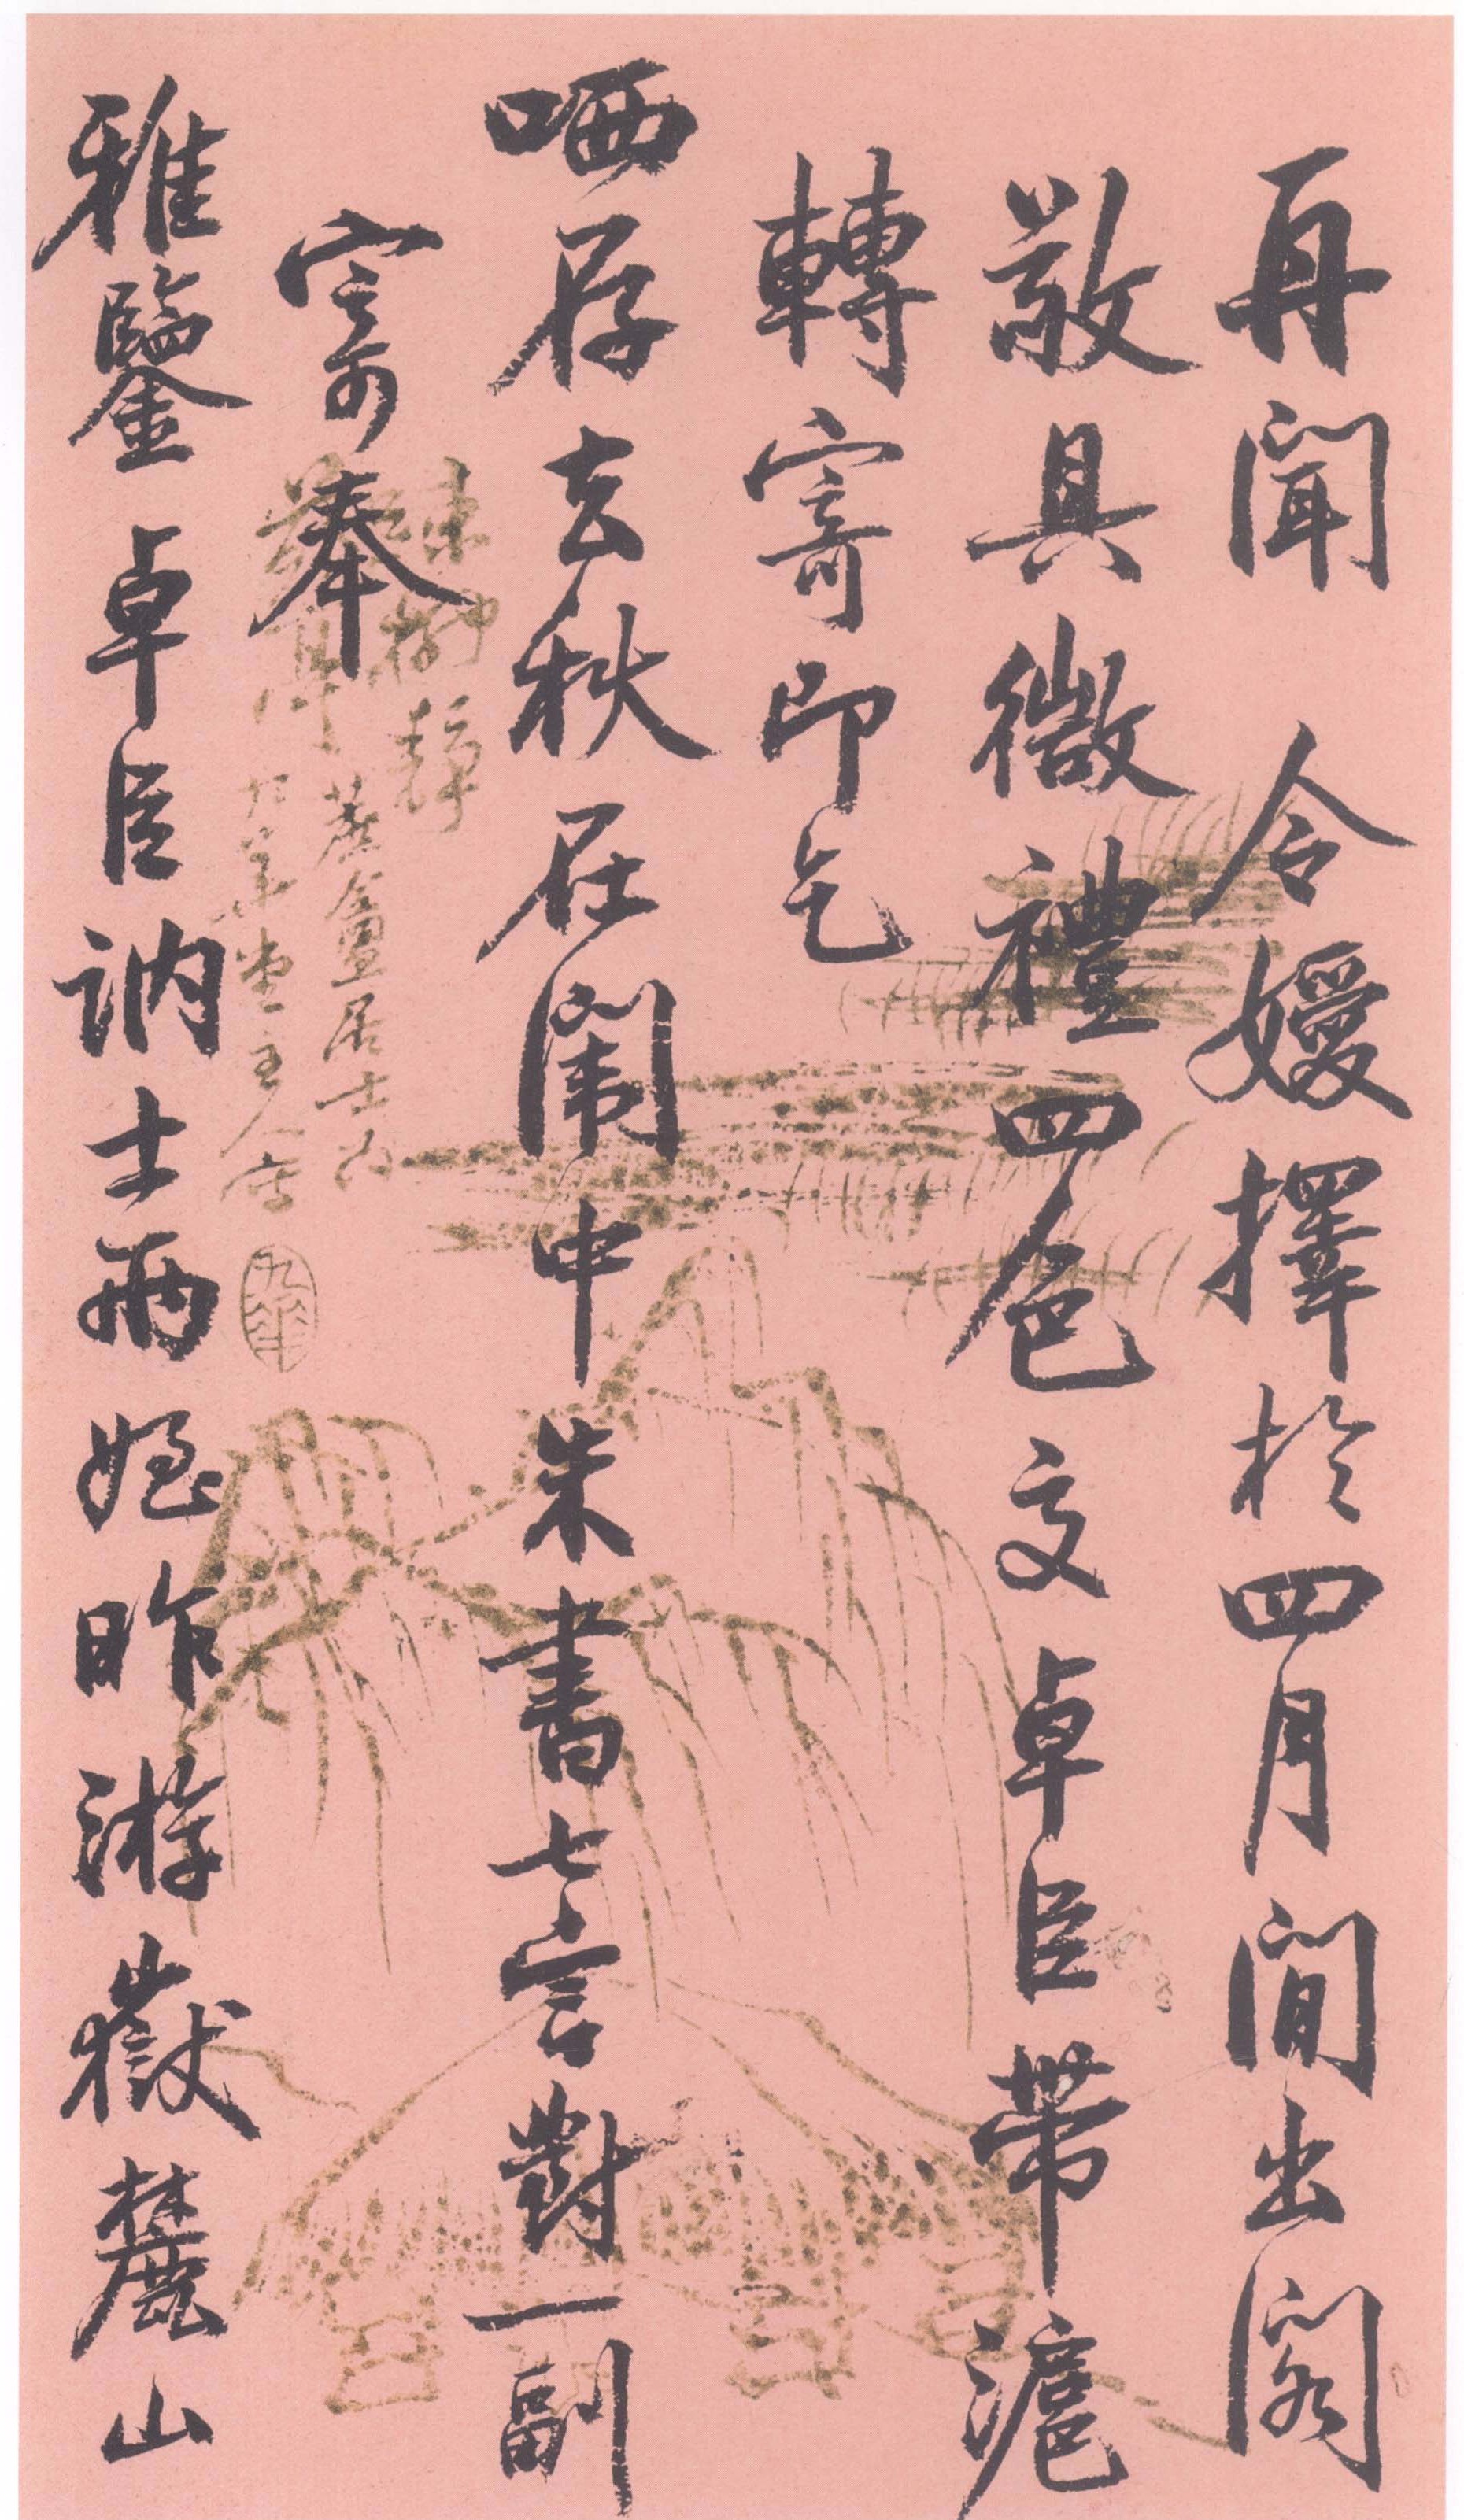 再聞令嬡擇於四月間出閣
敬具微禮四色交卓臣帶滬
轉寄即乞
哂存去秋在闈中朱書七言對一副
寄奉
雅鑒卓臣訥士兩姪昨游嶽麓山
居士
九華堂主人
九華